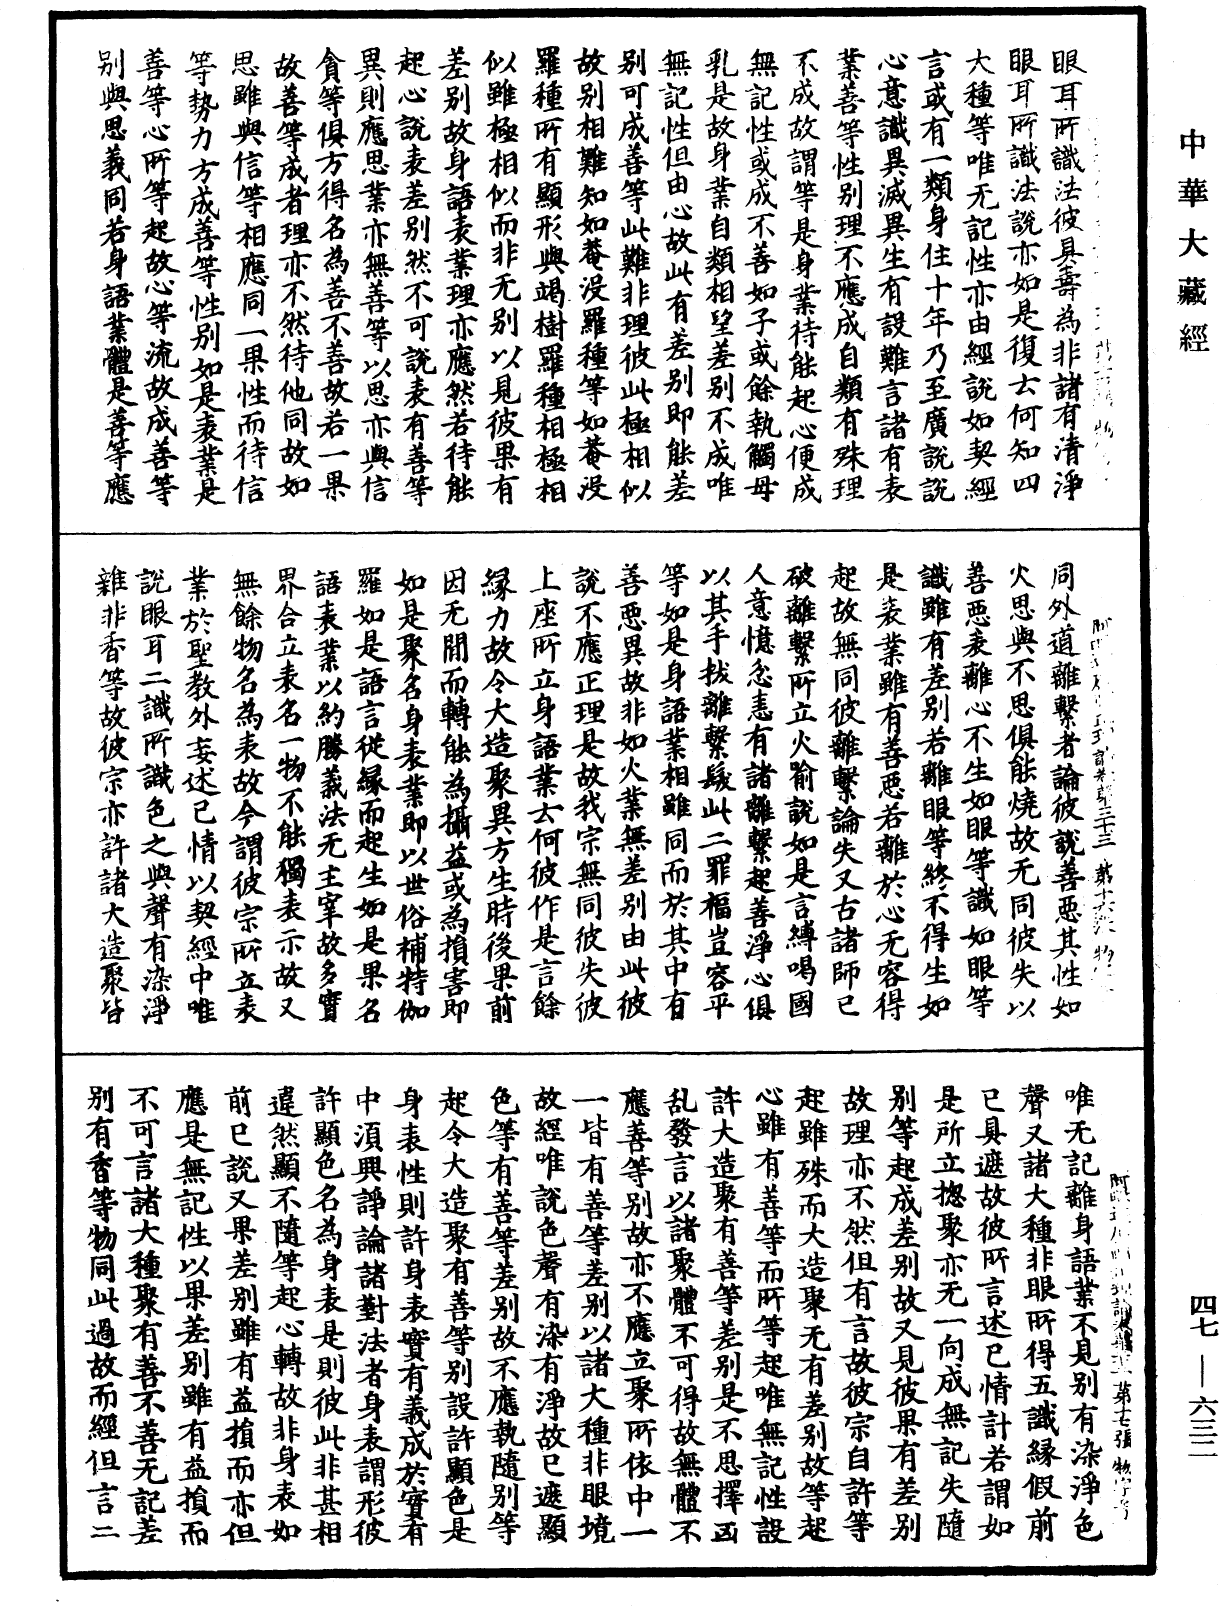 中華大藏經
眼耳所識法彼具壽為非諸有清淨
眼耳所識法說亦如是復去何知四
大種等唯无記性亦由經說如契經
言或有一類身住十年乃至廣說說
心意識異滅異生有設難言諸有表
業善等性別理不應成自類有殊理
不成故謂等是身業待能起心便成
無記性或成不善如子或餘執觸母
乳是故身業自類相望差別不成唯
無記性但由心故此有差別即能差
別可成善等此難非理彼此極相似
故別相難知如菴没羅種等如菴没
羅種所有顯形與竭樹羅種相極相
似雖極相似而非无別以見彼果有
差別故身語表業理亦應然若待能
起心說表差別然不可說表有善等
異則應思業亦無善等以思亦與信
貪等俱方得名為善不善故若一果
故善等成者理亦不然待他同故如
思雖與信等相應同一果性而待信
等勢力方成善等性別如是表業是
善等心所等起故心等流故成善等
別與思義同若身語業體是善等應
同外道離繫者論彼說善惡其性如
火思與不思俱能燒故无同彼失以
善惡表離心不生如眼等識如眼等
識雖有差別若離眼等終不得生如
是表業雖有善惡若離於心无容得
起故無同彼離繫論失又古諸師已
破離繫所立火喻說如是言縛喝國
人意憶忿恚有諸離繫起善淨心俱
以其手拔離繫髮此二罪福豈容平
等如是身語業相雖同而於其中有
善惡異故非如火業無差別由此彼
說不應正理是故我宗無同彼失彼
上座所立身語業去何彼作是言餘
緣力故令大造聚異方生時後果前
因无間而轉能為攝益或為損害即
如是聚名身表業即以世俗補特伽
羅如是語言從緣而起生如是果名
語表業以約勝義法无主宰故多實
界合立表名一物不能獨表示故又
無餘物名為表故今謂彼宗所立表
業於聖教外妄述已情以契經中唯
說眼耳二識所識色之與聲有染淨
雜非香等故彼宗亦許諸大造聚皆
第十六張
唯无記離身語業不見別有染淨色
聲又諸大種非眼所得五識緣假前
已具遮故彼所言述已情計若謂如
是所立揔聚亦无一向成無記失隨
別等起成差別故又見彼果有差別
故理亦不然但有言故彼宗自許等
起雖殊而大造聚无有差別故等起
心雖有善等而所等起唯無記性設
許大造聚有善等差別是不思擇凶
乱發言以諸聚體不可得故無體不
應善等別故亦不應立聚所依中一
一皆有善等差別以諸大種非眼境
故經唯說色聲有染有淨故已遮顯
色等有善等差別故不應執隨別等
起令大造聚有善等別設許顯色是
身表性則許身表實有義成於實有
中湏興諍論諸對法者身表謂形彼
許顯色名為身表是則彼此非甚相
違然顯不隨等起心轉故非身表如
前已說又果差別雖有益損而亦但
應是無記性以果差別雖有益損而
不可言諸大種聚有善不善无記差
別有香等物同此過故而經但言二
第十七張
四七—六三二